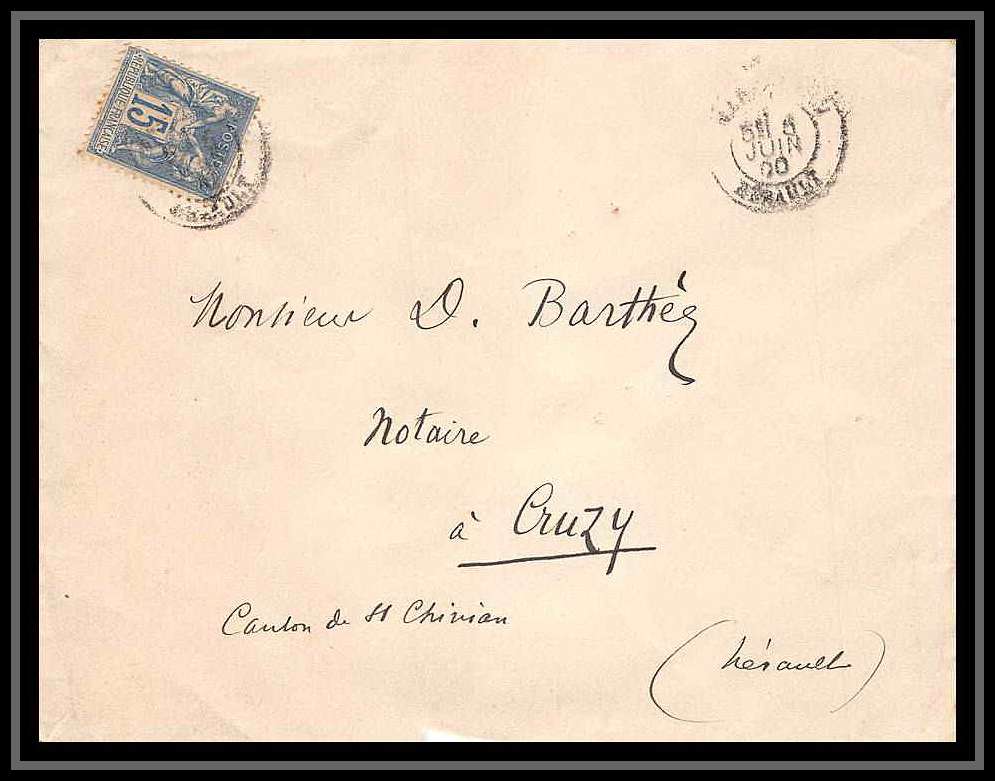 RÉPUBLIQUE FRANÇAISE
15
POSTE
JUIN
90
HERAULT
Monsieur D. Barthéz
Notaire
à Cruzy
Canton de St Chinian
(hérault)